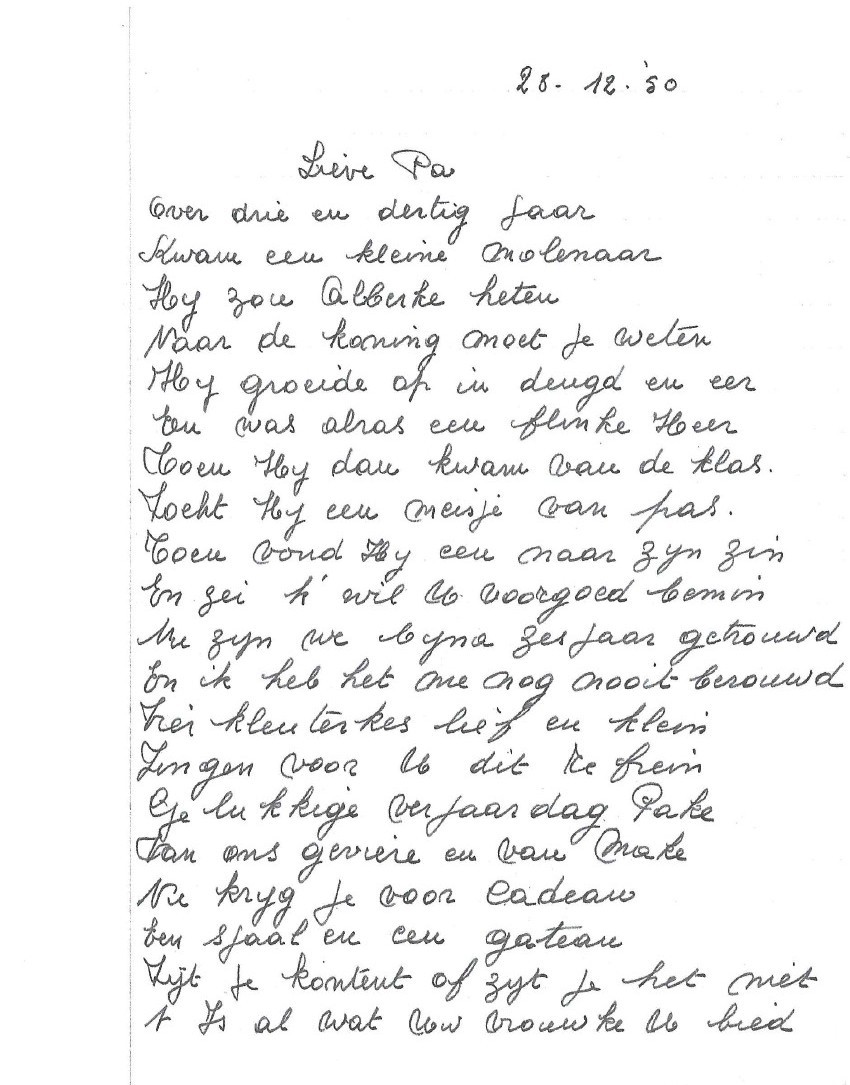 28-12-'50
Lieve Pa
Over drie en dertig jaar
Kwam een kleine molenaar
Hy zou Alberke heten
Naar de koning moet je weten
Hy groeide op in deugd en eer
En was alras een flinke Heer
Toen Hy dan kwam van de klas.
Zocht Hy een meisje van pas.
Toen vond Hy een naar zyn zin
En zei k' wil U voorgoed bemin
Nu zyn we byna zes jaar getrouwd
En ik heb het me nog nooit berouwd
Vier kleuterkes lief en klein
Zingen voor U dit Refrein
Gelukkige verjaardag Pake
Van ons geviere en van Make
Nu kryg je voor Cadeau
Een sjaal en een gateau
Zijt je kontent of zyt je het niet
t Is al wat Uw vrouwke U bied